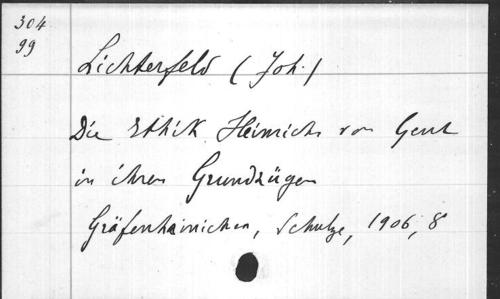 304
99
Lichterfeld (Joh.)
Die Ethik Heinrichs von Gent
in ihren Grundzügen
Gräfenhainichen, Schulze, 1906, 8